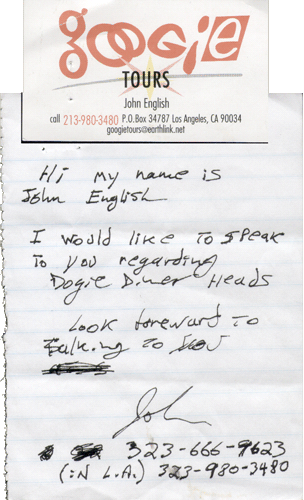 GOOGIE
TOURS
John English
call 213-980-3480 P.O.Box 34787 Los Angeles, CA 90034
googietours@earthlink.net
Hi my name is
John English
I would like To Speak
To you regarding
Dogie Diner Heads
Look foreward To
Talking To you
John
323-666-9623
(iN L.A.) 323-980-3480